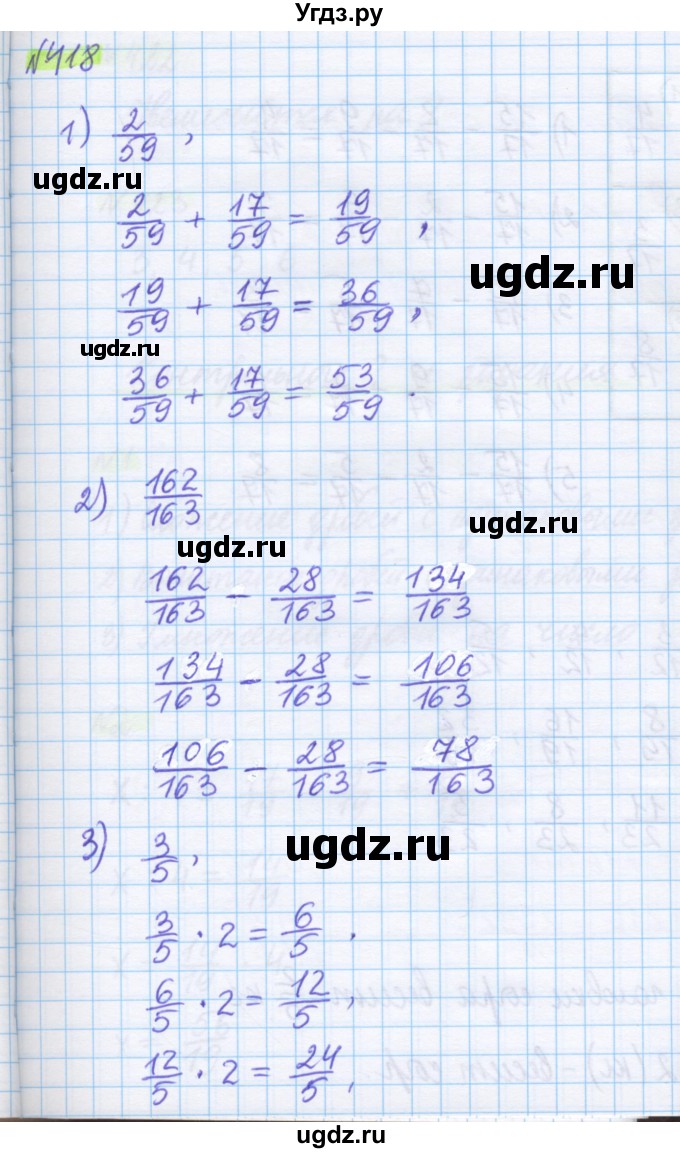 Угдз.ру
№418
1) 2/59 ,
ugdz.ru
2/59 + 17/59 = 19/59 ,
ugdz.ru
19/59 + 17/59 = 36/59 ,
ugdz.ru
36/59 + 17/59 = 53/59 .
2) 162/163
ugdz.ru
ugdz.ru
162/163 - 28/163 = 134/163
ugdz.ru
134/163 - 28/163 = 106/163
ugdz.ru
106/163 - 28/163 = 78/163
3) 3/5 ,
ugdz.ru
3/5 · 2 = 6/5 .
ugdz.ru
6/5 · 2 = 12/5 ,
ugdz.ru
12/5 · 2 = 24/5 ,
ugdz.ru